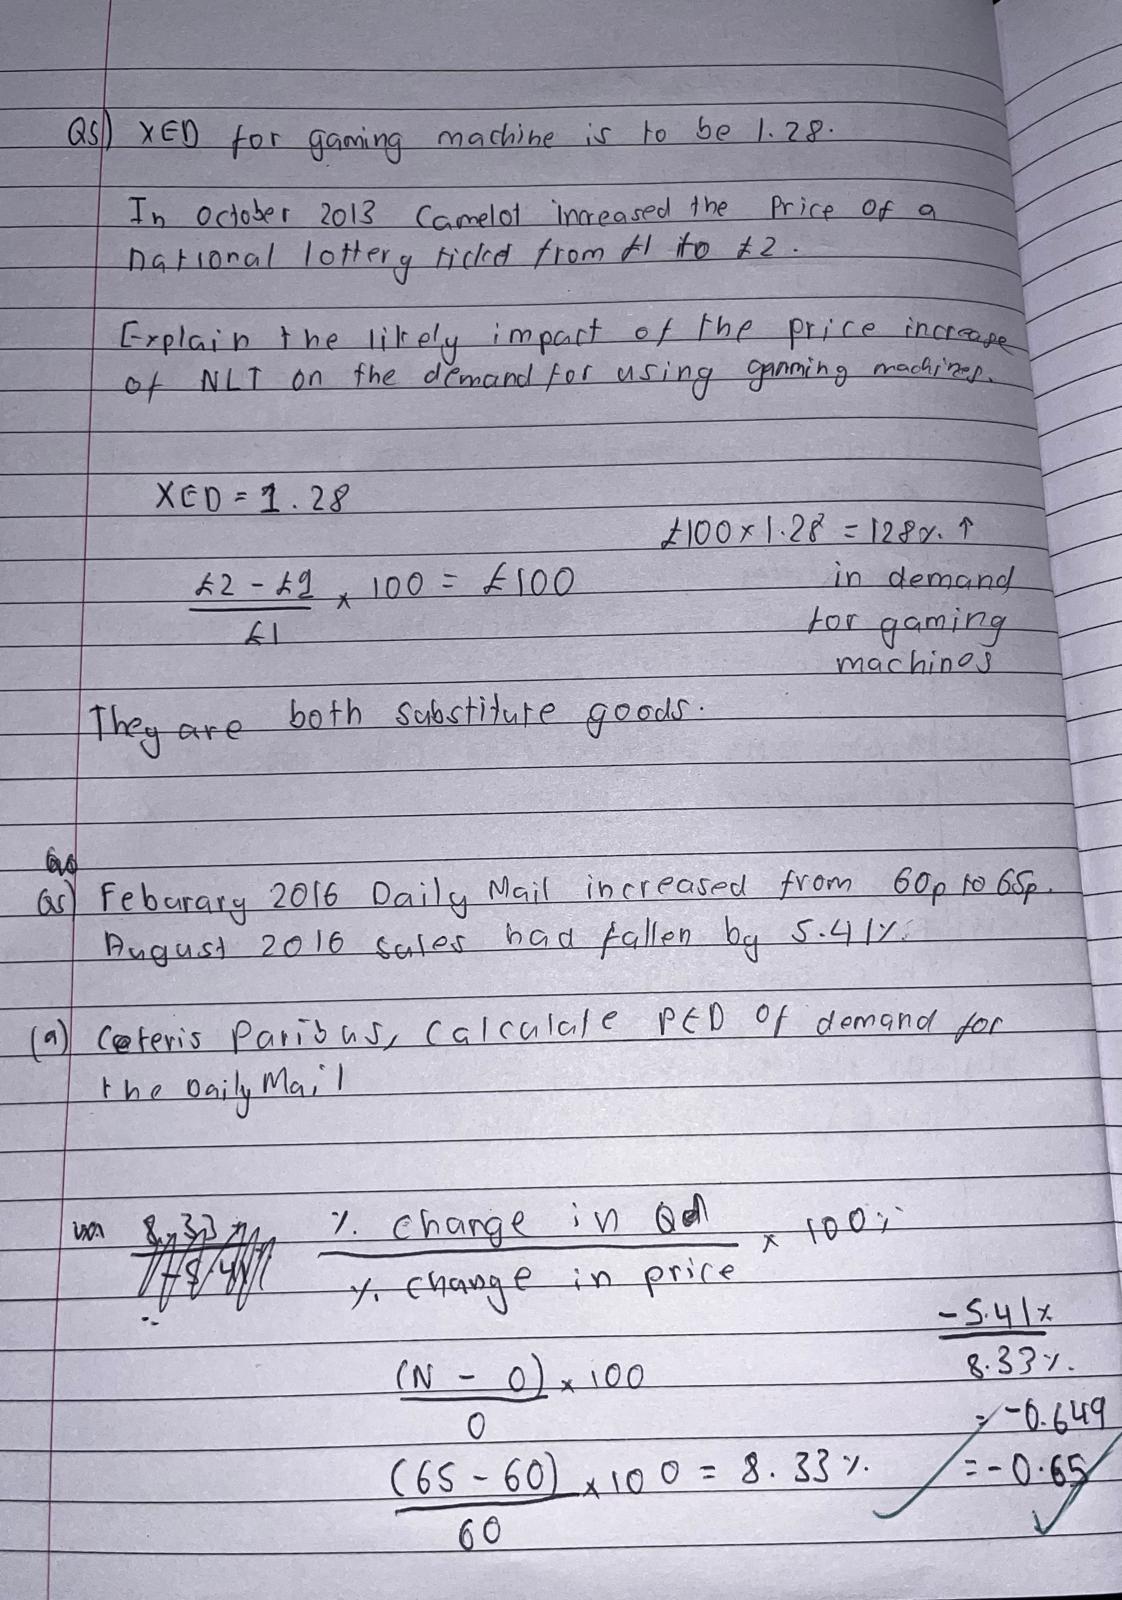 Qs) XED for gaming machine is to be 1.28.
In october 2013 Camelot increased the price of a
national lottery ticket from £1 to £2.
Explain the likely impact of the price increase
of NLT on the demand for using gamming machines.
XED = 1.28
£100 x 1.28 = 128% ↑
£2 - £1 x 100 = £100
£1
in demand
for gaming
machines
They are both substitute goods.
Qs) Feburary 2016 Daily Mail increased from 60p to 65p.
August 2016 sales had fallen by 5.41%.
(a) Ceteris Paribus, Calculate PED of demand for
the Daily Mail
% change in Qd x 100%
% change in price
-5.41%
8.33%.
(N - O) x 100
O
= -0.649
(65 - 60) x 100 = 8.33%.
60
= -0.65